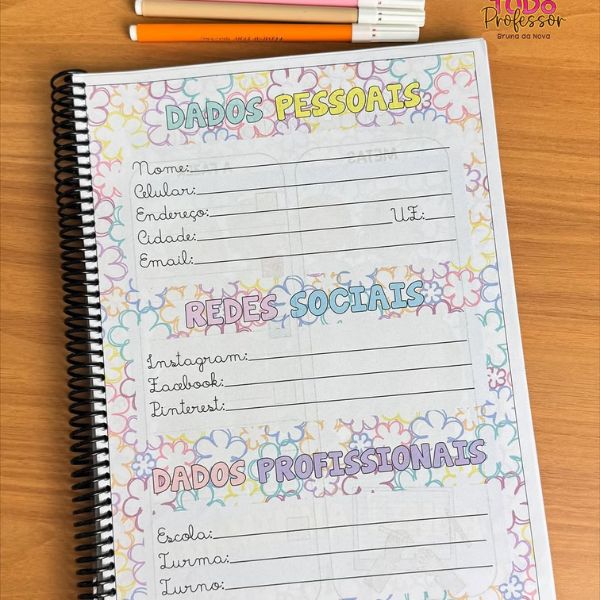 TUDO
Professor
Bruna da Nova
DADOS PESSOAIS
Nome:
Celular:
Endereço:
Cidade: UF:
Email:
REDES SOCIAIS
Instagram:
Facebook:
Pinterest:
DADOS PROFISSIONAIS
Escola:
Turma:
Turno: